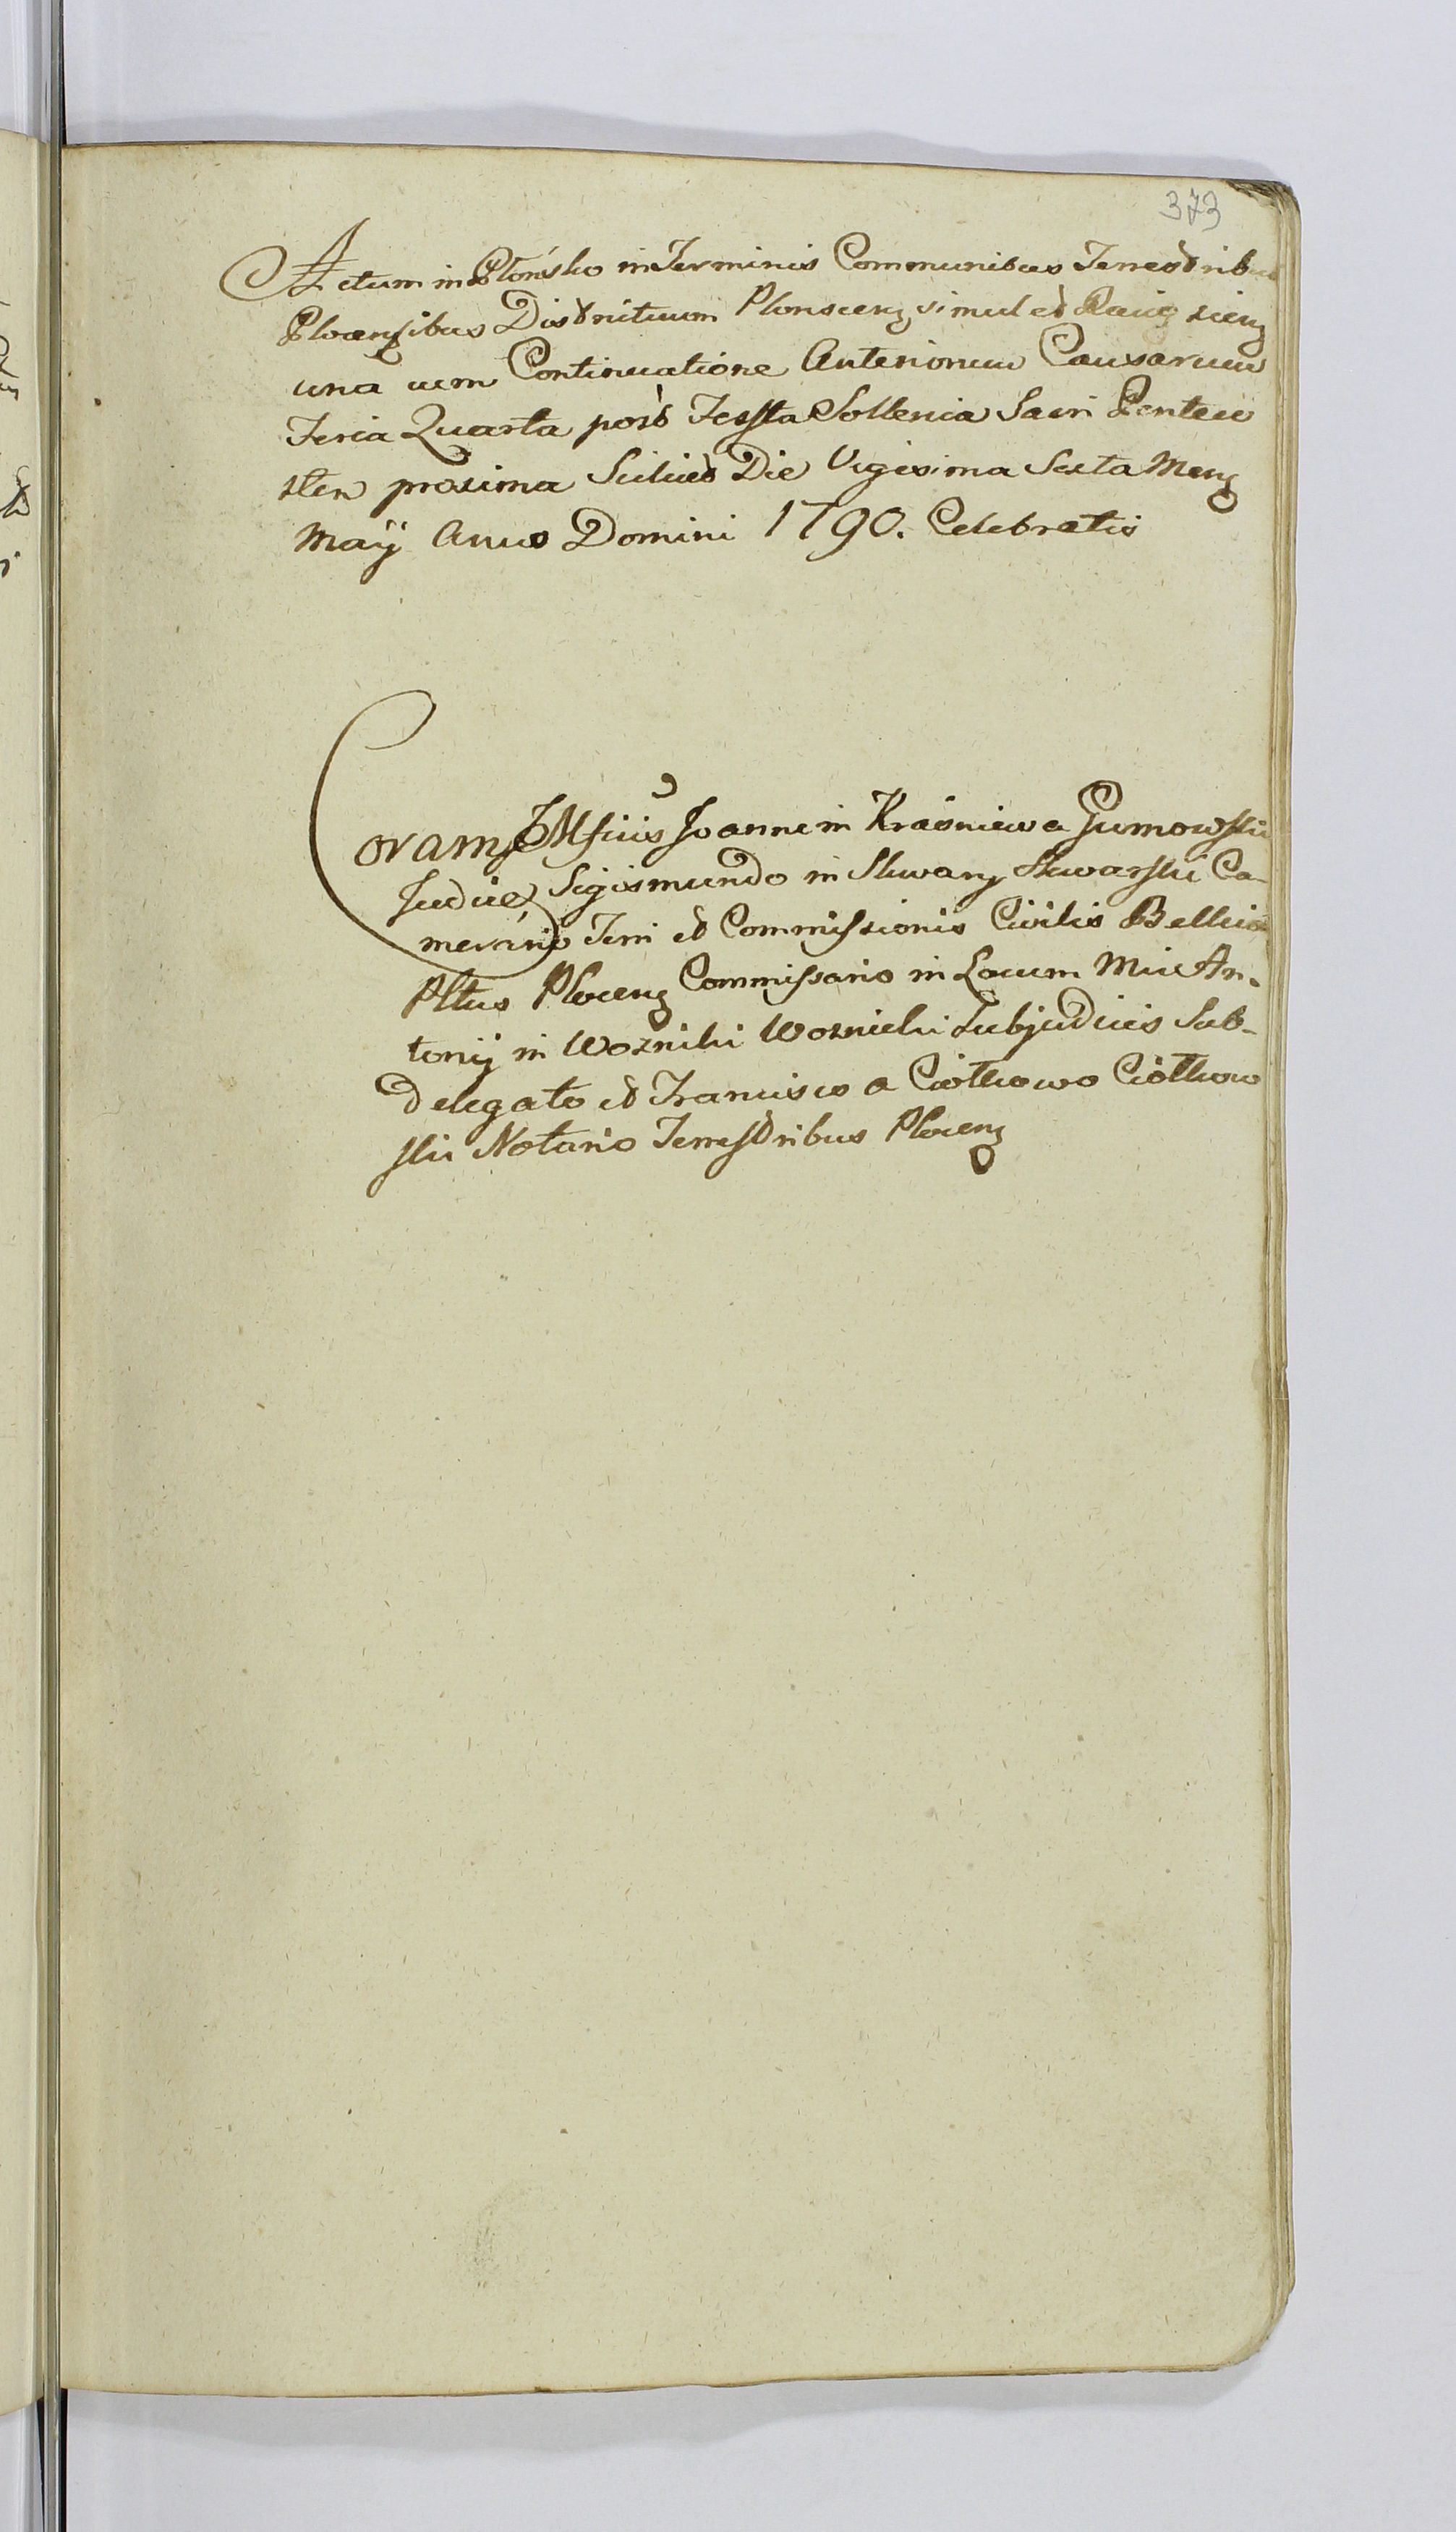 373
Actum in Płońsko in Terminis Communibus Terrestribus
Plocensibus Districtuum Plonscen simul et Raciązien
una cum Continuatione Anteriorum Causarum
Feria Quarta post Festa Sollenia Sacri Penteco
sten proxima Scilicet Die Vigesima Sexta Mens
Maÿ Anno Domini 1790. Celebratis
Coram Mficis Joanne in Kraśniewa Gumowski
Judice, Sigismundo in Skwary Skwarski Ca-
merario Terri et Commissionis Civilis Bellico
Pltus Plocens Commissario in Locum Mici An-
tonij in Wozniki Woznicki Subjudicis Sub-
delegato et Francisco a Ciółkowo Ciółkow
ski Notario Terrestribus Plocens